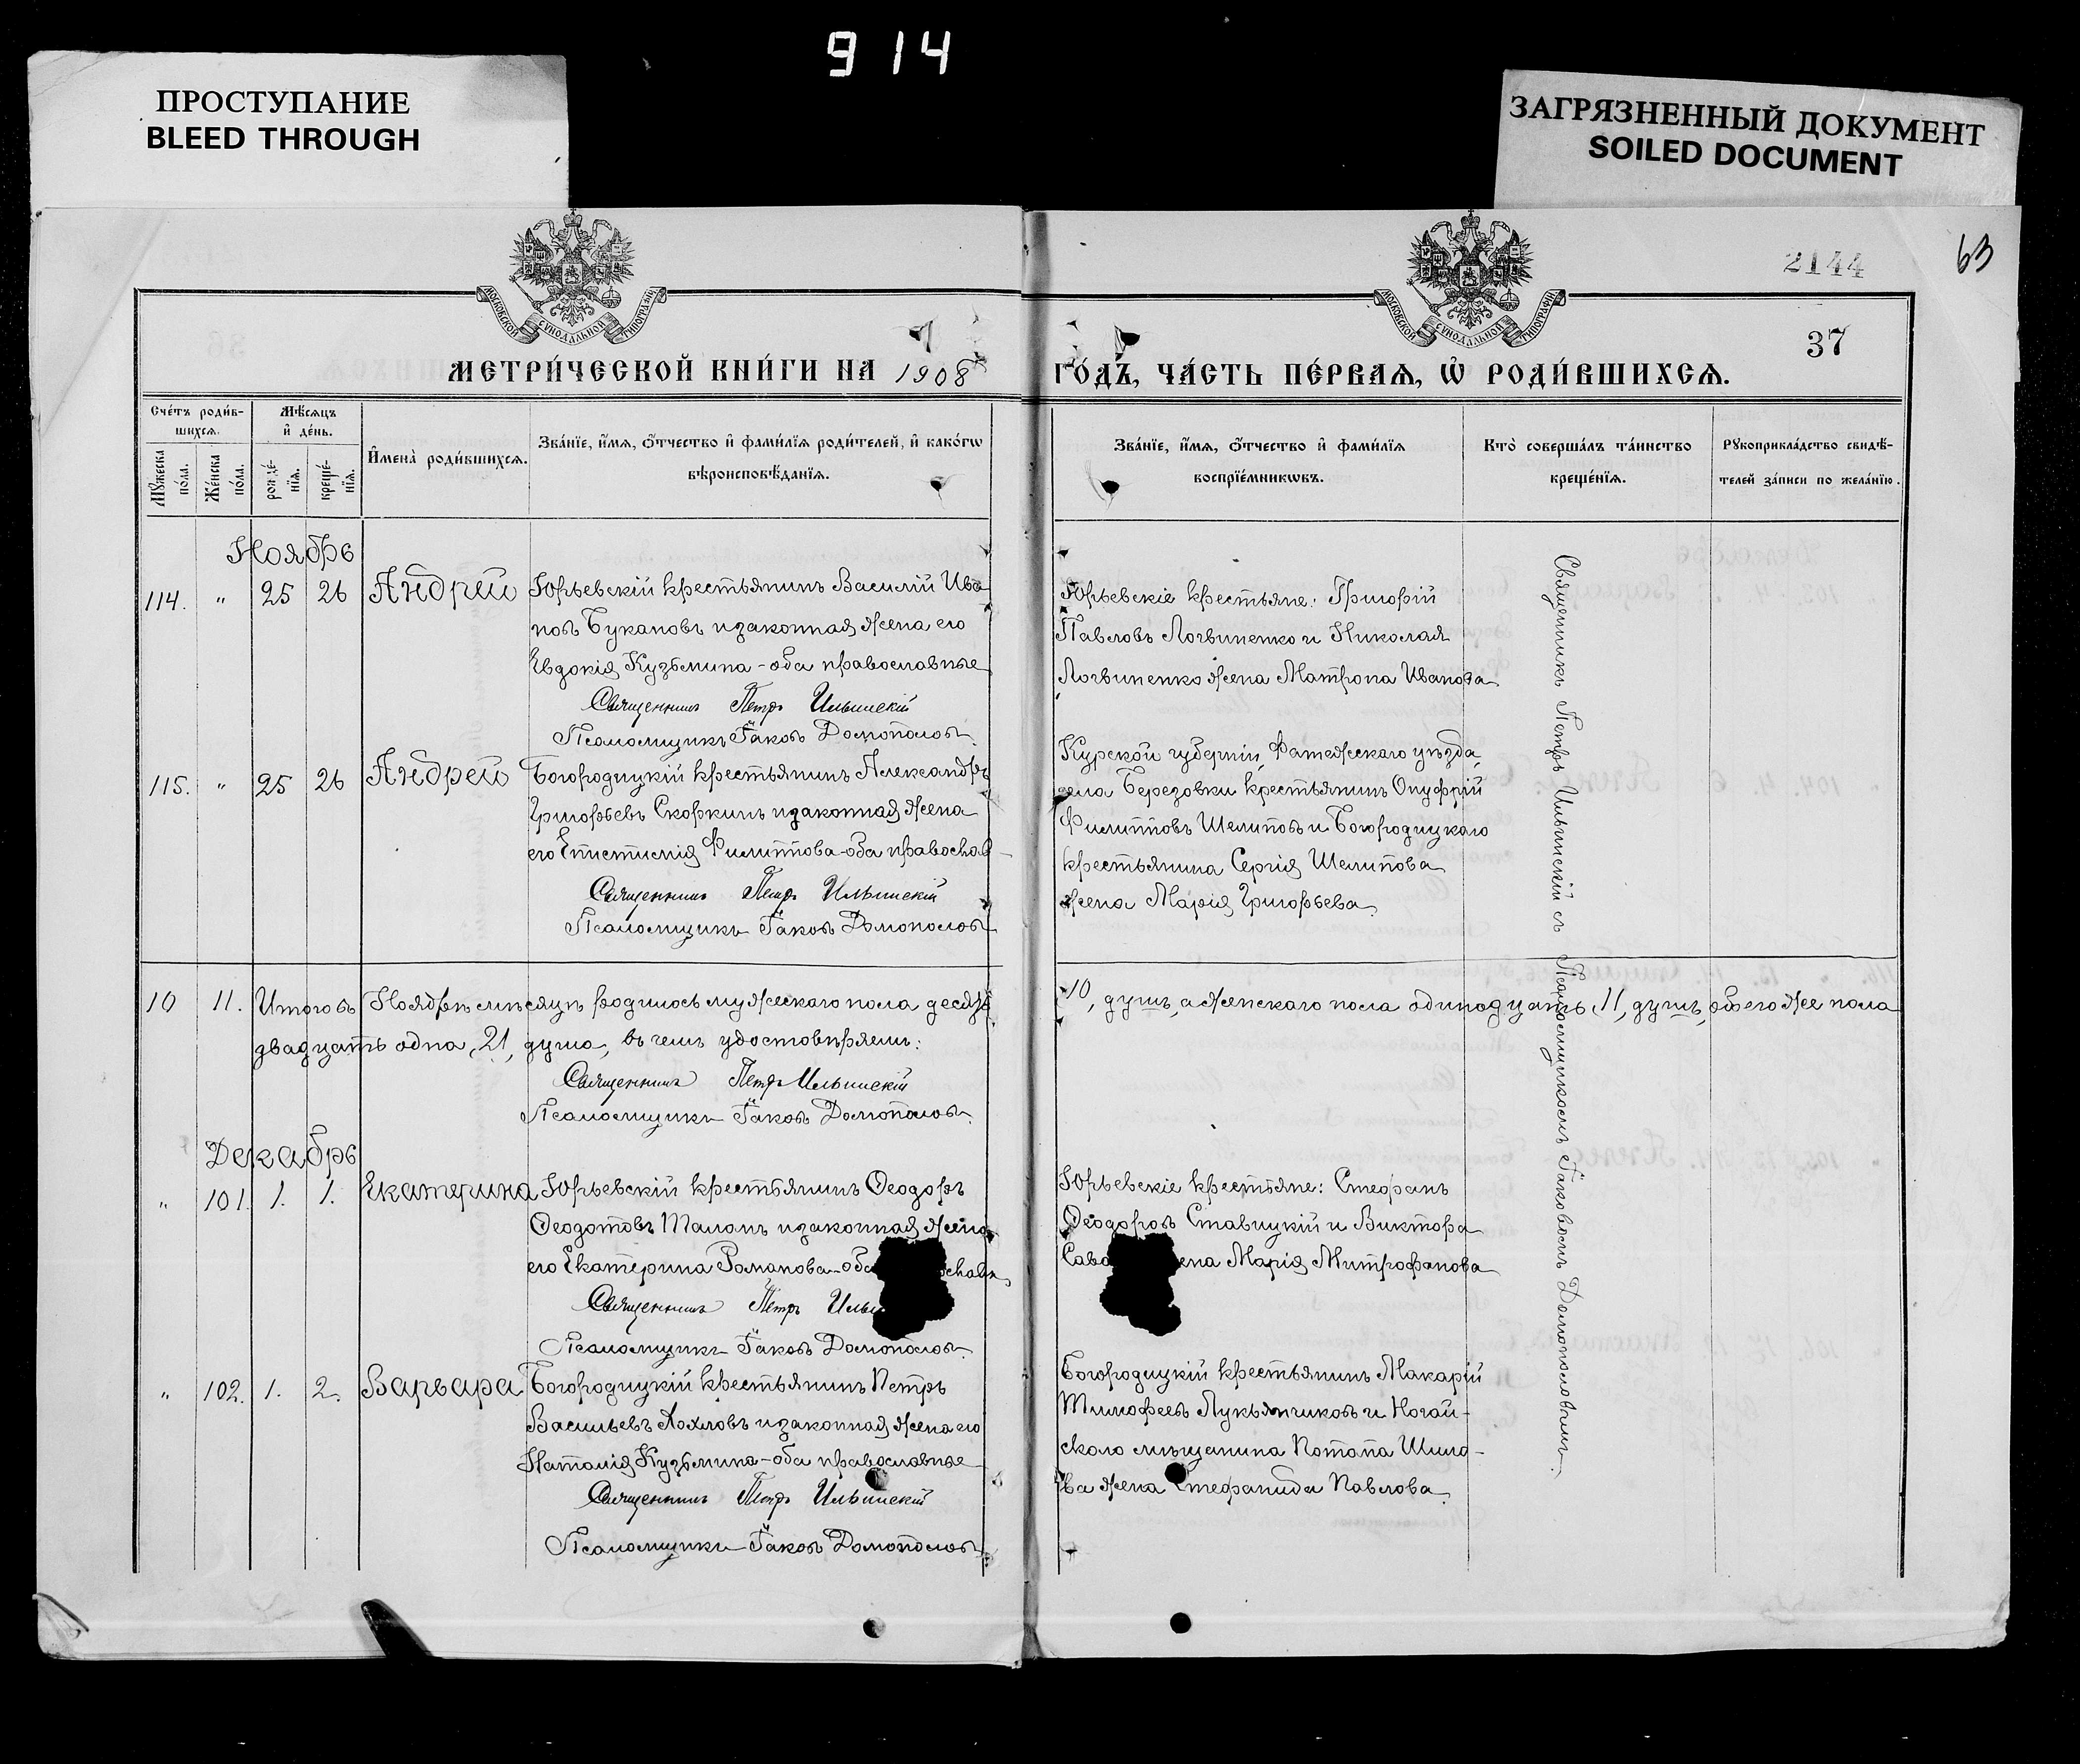 914
ПРОСТУПАНИЕ
BLEED THROUGH
ЗАГРЯЗНЕННЫЙ ДОКУМЕНТ
SOILED DOCUMENT
2144
63
37
МОСКОВСКОЙ СѴНОДАЛЬНОЙ ТИПОГРАФІИ
МОСКОВСКОЙ СѴНОДАЛЬНОЙ ТИПОГРАФІИ
МЕТРИ́ЧЕСКОЙ КНИ́ГИ НА 1908 ГО́ДЪ, ЧА́СТЬ ПЕ́РВАѦ, Ѡ҆ РОДИ́ВШИХСѦ.
Сче́тъ роди́в-
шихсѧ.
Мꙋжеска по́ла.
Же́нска по́ла.
Мѣ́сѧцъ
и҆ де́нь.
рожде́-
нїѧ.
креще́-
нїѧ.
И҆мена̀ роди́вшихсѧ.
Зва́нїе, и҆́мѧ, ѻ҆́тчество и҆ фами́лїѧ роди́телей, и҆ како́гѡ
вѣроисповѣ́данїѧ.
Зва́нїе, и҆́мѧ, ѻ҆́тчество и҆ фами́лїѧ
воспрїе́мникѡвъ.
Кто̀ соверша́лъ та́инство
креще́нїѧ.
Рꙋкоприкла́дство свидѣ́-
телей за́писи по жела́нїю.
Ноябрь
114. " 25 26 Андрей
Юрьевскій крестьянинъ Василій Ива
новъ Букановъ и законная жена его
Евдокія Кузьмина - оба православные
Священникъ Петръ Ильинскій
Псаломщикъ Іаковъ Домополовъ
Юрьевскіе крестьяне: Григорій
Павловъ Логвиненко и Николая
Логвиненко жена Матрона Иванова
115. " 25 26 Андрей
Богородицкій крестьянинъ Александръ
Григорьевъ Скоркинъ и законная жена
его Епистимія Филиппова - оба православ
Священникъ Петръ Ильинскій
Псаломщикъ Іаковъ Домополовъ
Курской губерніи, Фатежскаго уѣзда,
села Березовки крестьянинъ Онуфрій
Филипповъ Шелиповъ и Богородицкаго
крестьянина Сергія Шелипова
жена Марія Григорьева
10 11. Итого въ Ноябрѣ мѣсяцѣ родилось мужескаго пола десять 10, душъ, а женскаго пола одинодцать, 11, душъ, обоего же пола
двадцать одна, 21, душа, въ чемъ удостовѣряемъ:
Священникъ Петръ Ильинскій
Псаломщикъ Іаковъ Домополовъ
Декабрь
" 101. 1. 1. Екатерина
Юрьевскій крестьянинъ Ѳеодоръ
Ѳеодотовъ Талонъ и законная жена
его Екатерина Романова - оба славн
Священникъ Петръ Ильи
Псаломщикъ Іаковъ Домополовъ
Юрьевскіе крестьяне: Стефанъ
Ѳеодоровъ Ставицкій и Виктора
Сава ена Марія Митрофанова
" 102. 1. 2. Варвара
Богородицкій крестьянинъ Петръ
Васильевъ Хохловъ и законная жена его
Наталія Кузьмина - оба православные
Священникъ Петръ Ильинскій
Псаломщикъ Іаковъ Домополовъ
Богородицкій крестьянинъ Макарій
Тимофеевъ Лукьянчиковъ и Ногай-
скаго мѣщанина Потапа Шило-
ва жена Стефанида Павлова
Священникъ Петръ Ильинскій съ Псаломщикомъ Іаковомъ Домополовымъ.